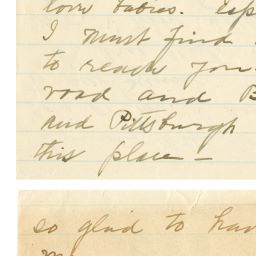 love babies. Esp
I must find
to reach you
road and B
and Pittsburgh
this place —
so glad to hav